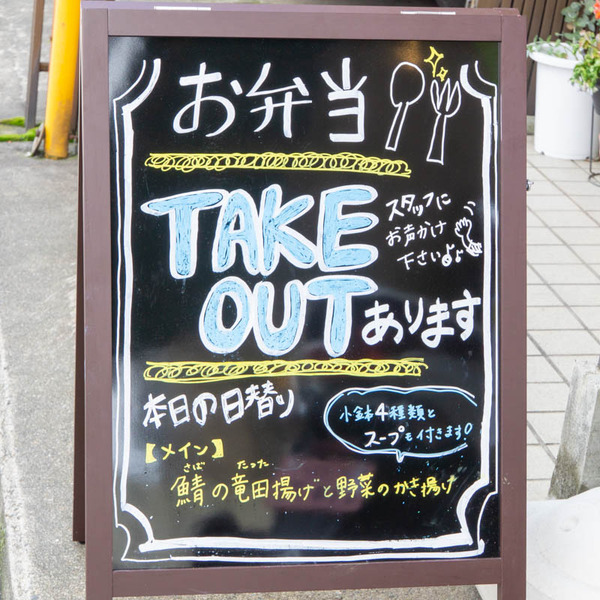 お弁当
TAKE
OUTあります
スタッフに
お声かけ
下さい♪♪
本日の日替り
小鉢4種類と
スープも付きます!
【メイン】
さば たった
鯖の竜田揚げと野菜のかき揚げ